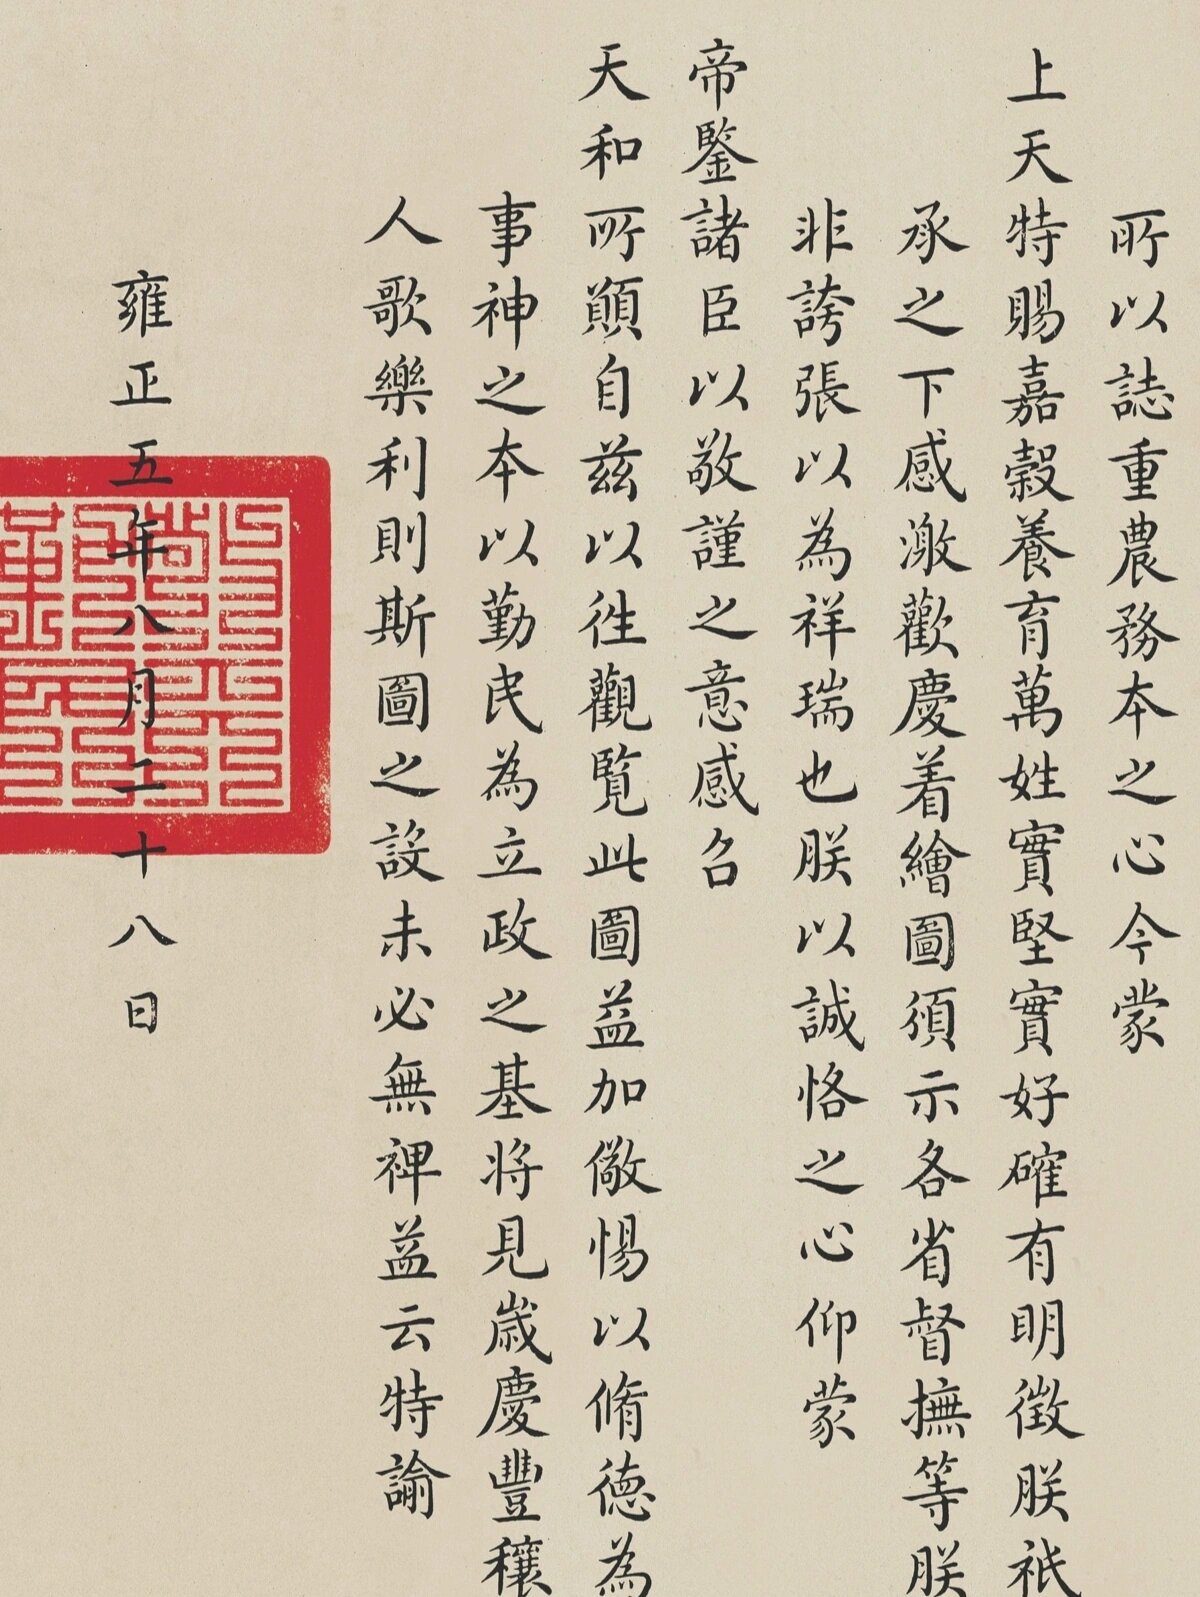 所以誌重農務本之心今蒙
上天特賜嘉穀養育萬姓實堅實好確有明徵朕祇
承之下感激歡慶着繪圖頒示各省督撫等朕
非誇張以為祥瑞也朕以誠恪之心仰蒙
帝鑒諸臣以敬謹之意感召
天和所願自茲以往觀覽此圖益加儆惕以脩德為
事神之本以勤民為立政之基將見歲慶豐穰
人歌樂利則斯圖之設未必無裨益云特諭
雍正五年八月二十八日